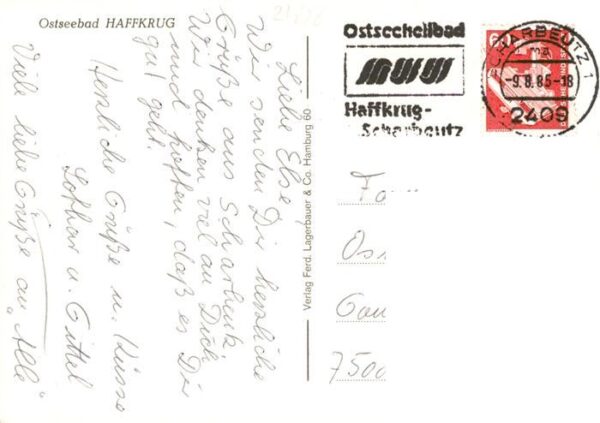 Ostseebad HAFFKRUG
Liebe Else,
Wir senden Dir herzliche
Grüße aus Scharbeutz.
Wir denken viel an Dich
und hoffen, daß es Dir
gut geht.
Herzliche Grüße u. Küsse
Lothar u. Gittel
Viele liebe Grüße an "Alle"
Verlag Ferd. Lagerbauer & Co. Hamburg 60
Ostseeheilbad
Haffkrug-
Scharbeutz
SCHARBEUTZ 1
ma
-9.8.85-18
2409
7500